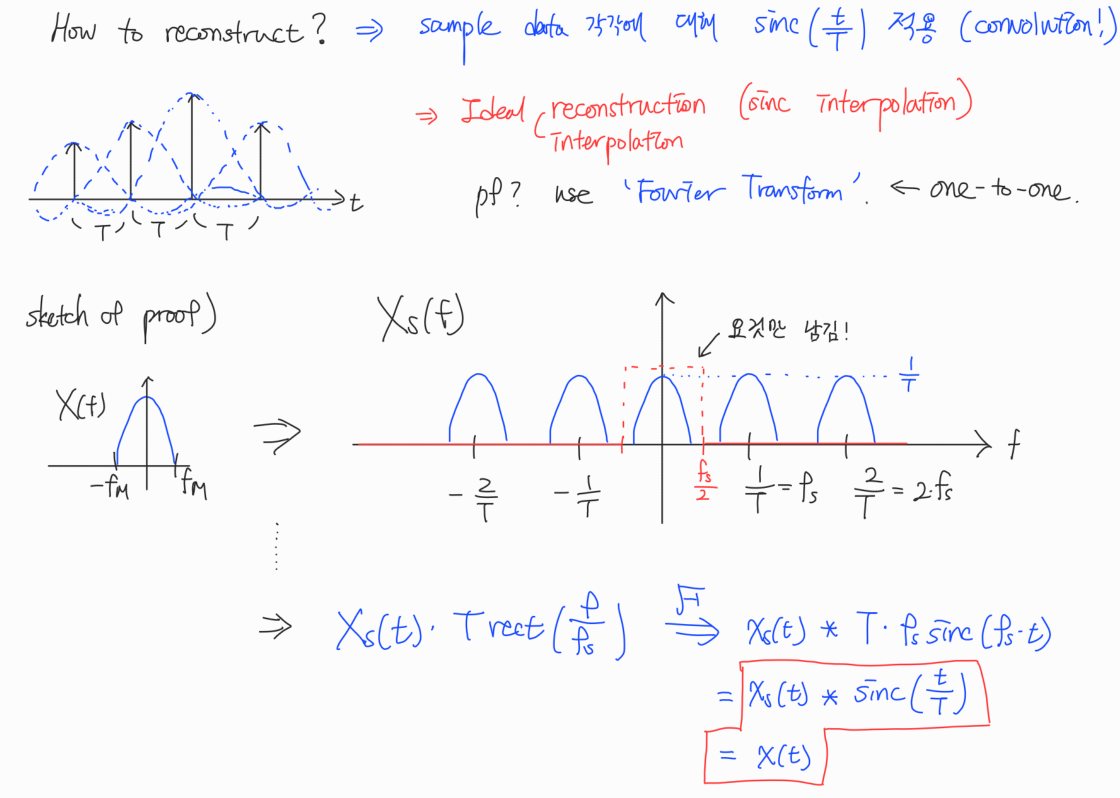 How to reconstruct? ⇒ sample data 각각에 대해 sinc(t/T) 적용 (convolution!)
⇒ Ideal reconstruction (sinc interpolation)
interpolation
pf? use 'Fourier Transform'. ← one-to-one.
t
T T T
sketch of proof)
Xs(f)
요것만 남김!
1/T
X(f)
-fM fM
f
-2/T -1/T fs/2 1/T = fs 2/T = 2·fs
⇒ Xs(t)· T rect(f/fs) ⇒ xs(t) * T· fs sinc(fs·t)
= xs(t) * sinc(t/T)
= x(t)